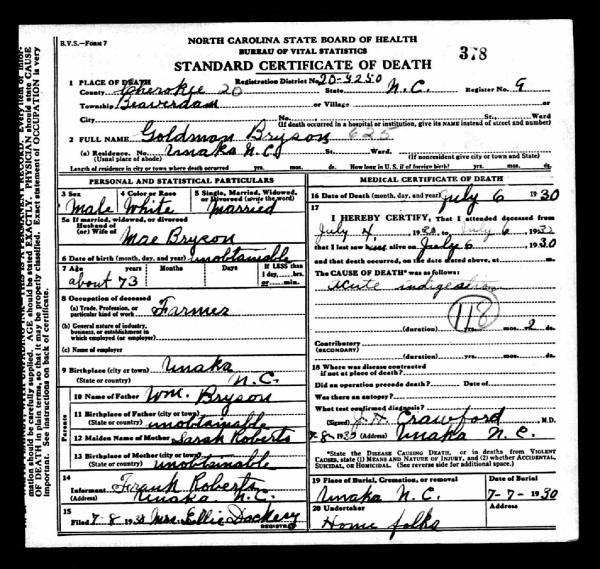 B.V.S.—FORM 7
NORTH CAROLINA STATE BOARD OF HEALTH
BUREAU OF VITAL STATISTICS
STANDARD CERTIFICATE OF DEATH
378
1 PLACE OF DEATH
Registration District No. 20-4250
County Cherokee 20 State N.C. Register No. 9
Township Beaverdam or Village
City No. St., Ward
(If death occurred in a hospital or institution, give its NAME instead of street and number)
2 FULL NAME Goldman Bryson 625
(a) Residence. No. Unaka N.C. St., Ward.
(Usual place of abode) (If nonresident give city or town and State)
Length of residence in city or town where death occurred yrs. mos. ds. How long in U.S., if of foreign birth? yrs. mos. ds.
PERSONAL AND STATISTICAL PARTICULARS
3 Sex 4 Color or Race 5 Single, Married, Widowed, or Divorced (write the word)
Male White Married
5a If married, widowed, or divorced
Husband of
(or) Wife of Mae Bryson
6 Date of birth (month, day, and year) unobtainable
7 Age years Months Days If LESS than
about 73 1 day, hrs.
or min.
8 Occupation of deceased
(a) Trade, Profession, or particular kind of work Farmer
(b) General nature of industry, business, or establishment in which employed (or employer)
(c) Name of employer
9 Birthplace (city or town) Unaka
(State or country) N.C.
Parents
10 Name of Father Wm. Bryson
11 Birthplace of Father (city or town)
(State or country) unobtainable
12 Maiden Name of Mother Sarah Roberts
13 Birthplace of Mother (city or town)
(State or country) unobtainable
14
Informant Frank Roberts
(Address) Unaka N.C.
15
Filed 7-8 1930 Mrs. Ellie Dockery
REGISTRAR
MEDICAL CERTIFICATE OF DEATH
16 Date of Death (month, day, and year) July 6 1930
17
I HEREBY CERTIFY, That I attended deceased from
July 4, 1930, to July 6, 1930
that I last saw him alive on July 6 1930
and that death occurred, on the date stated above, at m.
The CAUSE OF DEATH* was as follows:
acute indigestion
118
(duration) yrs. mos. 2 ds.
Contributory
(SECONDARY)
(duration) yrs. mos. ds.
18 Where was disease contracted
if not at place of death?
Did an operation precede death? Date of
Was there an autopsy?
What test confirmed diagnosis?
(Signed) Crawford M.D.
7-8-1930 (Address) Unaka N.C.
*State the DISEASE CAUSING DEATH, or in deaths from VIOLENT CAUSES, state (1) MEANS AND NATURE OF INJURY, and (2) whether ACCIDENTAL, SUICIDAL, or HOMICIDAL. (See reverse side for additional space.)
19 Place of Burial, Cremation, or removal Date of Burial
Unaka N.C. 7-7-1930
20 Undertaker
Home folks
Address
mation should be carefully supplied. AGE should be stated EXACTLY. PHYSICIAN should state CAUSE
OF DEATH in plain terms, so that it may be properly classified. Exact statement of OCCUPATION is very
important. See instructions on back of certificate.